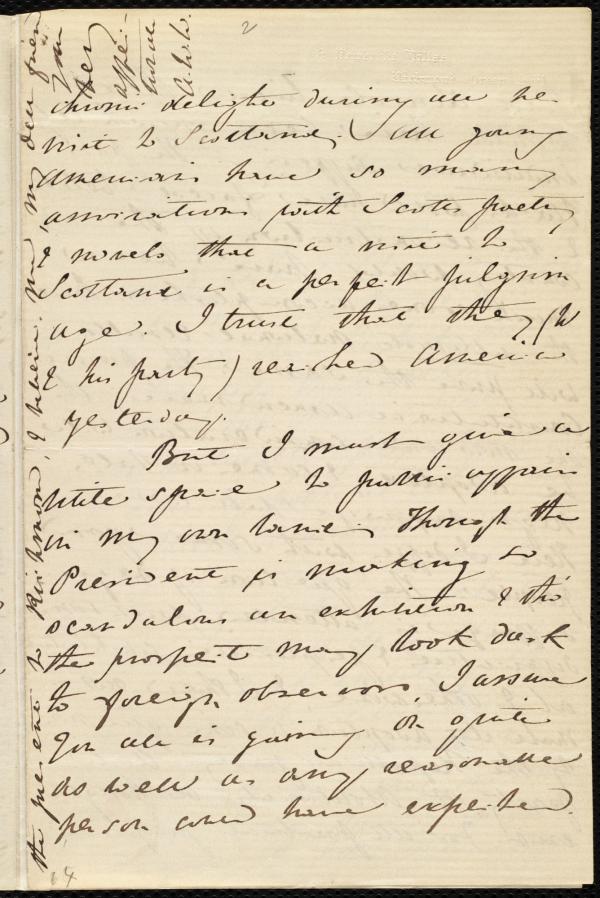 2
chronic delight during all he
visit to Scotland. All young
Americans have so many
associations with Scotts poetry
& novels that a visit to
Scotland is a perfect pilgrim
age. I trust that they (W
& his party) reached America
yesterday.
But I must give a
little space to public affairs
in my own land. Though the
President is making so
scandalous an exhibition & tho'
the prospect may look dark
to foreign observers I assure
you all is going on quite
as well as any reasonable
person could have expected.
the present to Richmond, & believe me, my dear friend
Your
very
affec-
tionate
64